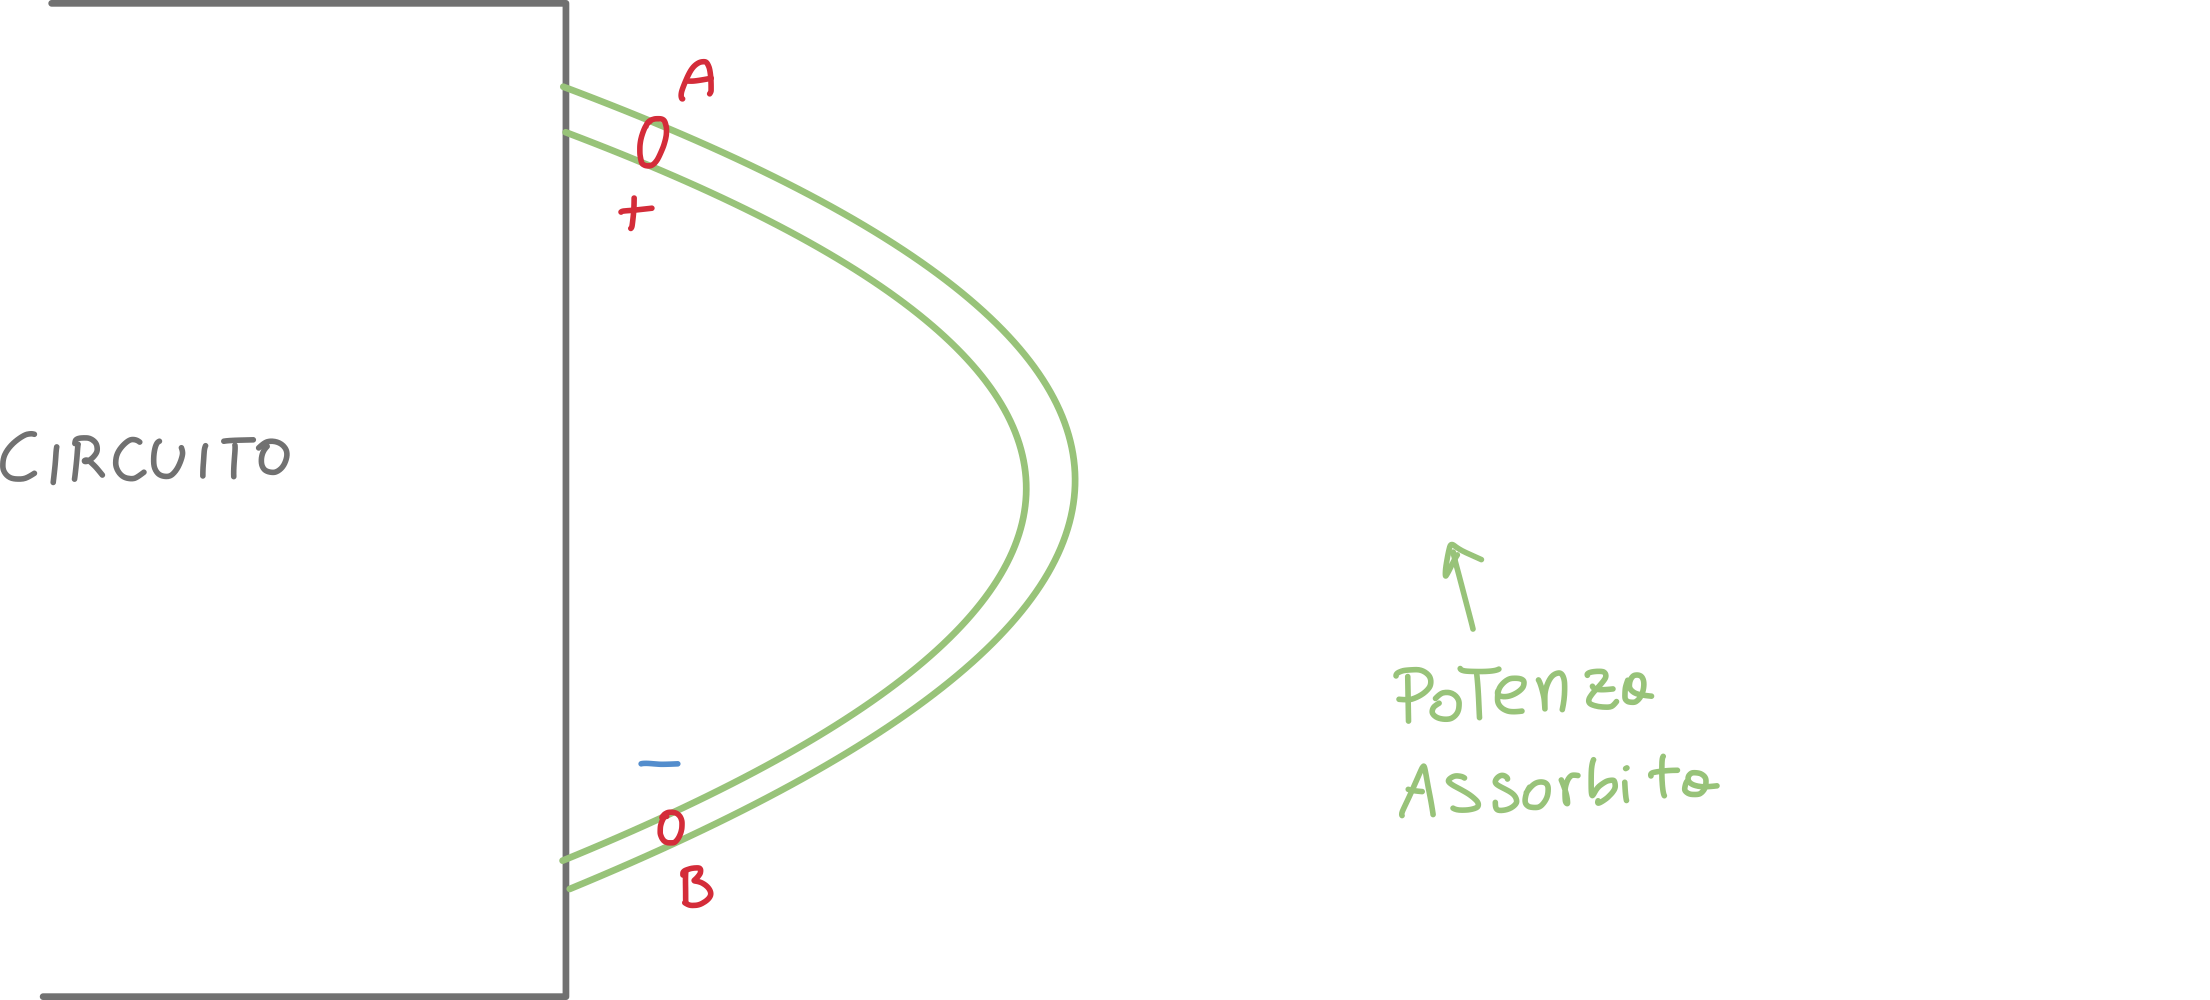 A
+
CIRCUITO
Potenza
Assorbita
−
B